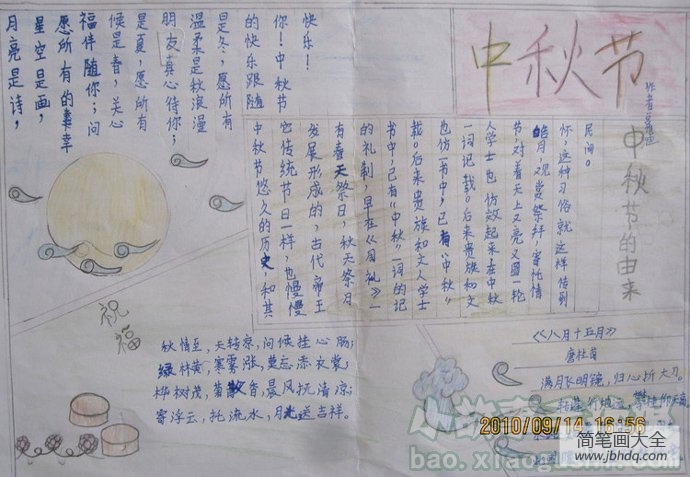 中秋节
中秋节的由来
中秋节悠久的历史,和其
它传统节日一样,也慢慢
发展形成的,古代帝王
有春天祭日,秋天祭月
的礼制,早在《周礼》一
书中,已有"中秋"一词的记
载。后来贵族和文人学士
也仿
书中,已有"中秋"
一词记载。后来贵族和文
人学士也仿效起来在中秋
节,对着天上又亮又圆一轮
皓月,观赏祭拜,寄托情
怀,这种习俗就这样传到
民间。
月亮是诗,
星空是画,
愿所有的幸
福伴随你;问
候是春,关心
是夏,愿所有
朋友真心待你;
温柔是秋浪漫
是冬,愿所有
的快乐跟随
你!中秋节
快乐!
祝福
秋情至,天转凉,问候挂心肠;
绿林黄,寒雾涨,莫忘添衣裳;
桦树茂,菊散香,晨风抚清凉;
寄浮云,托流水,月光送吉祥。
《八月十五月》
唐杜甫
满月飞明镜,归心折大刀。
转蓬行地远,攀桂仰天高。
2010/09/14 16:56
简笔画大全
www.jbhdq.com